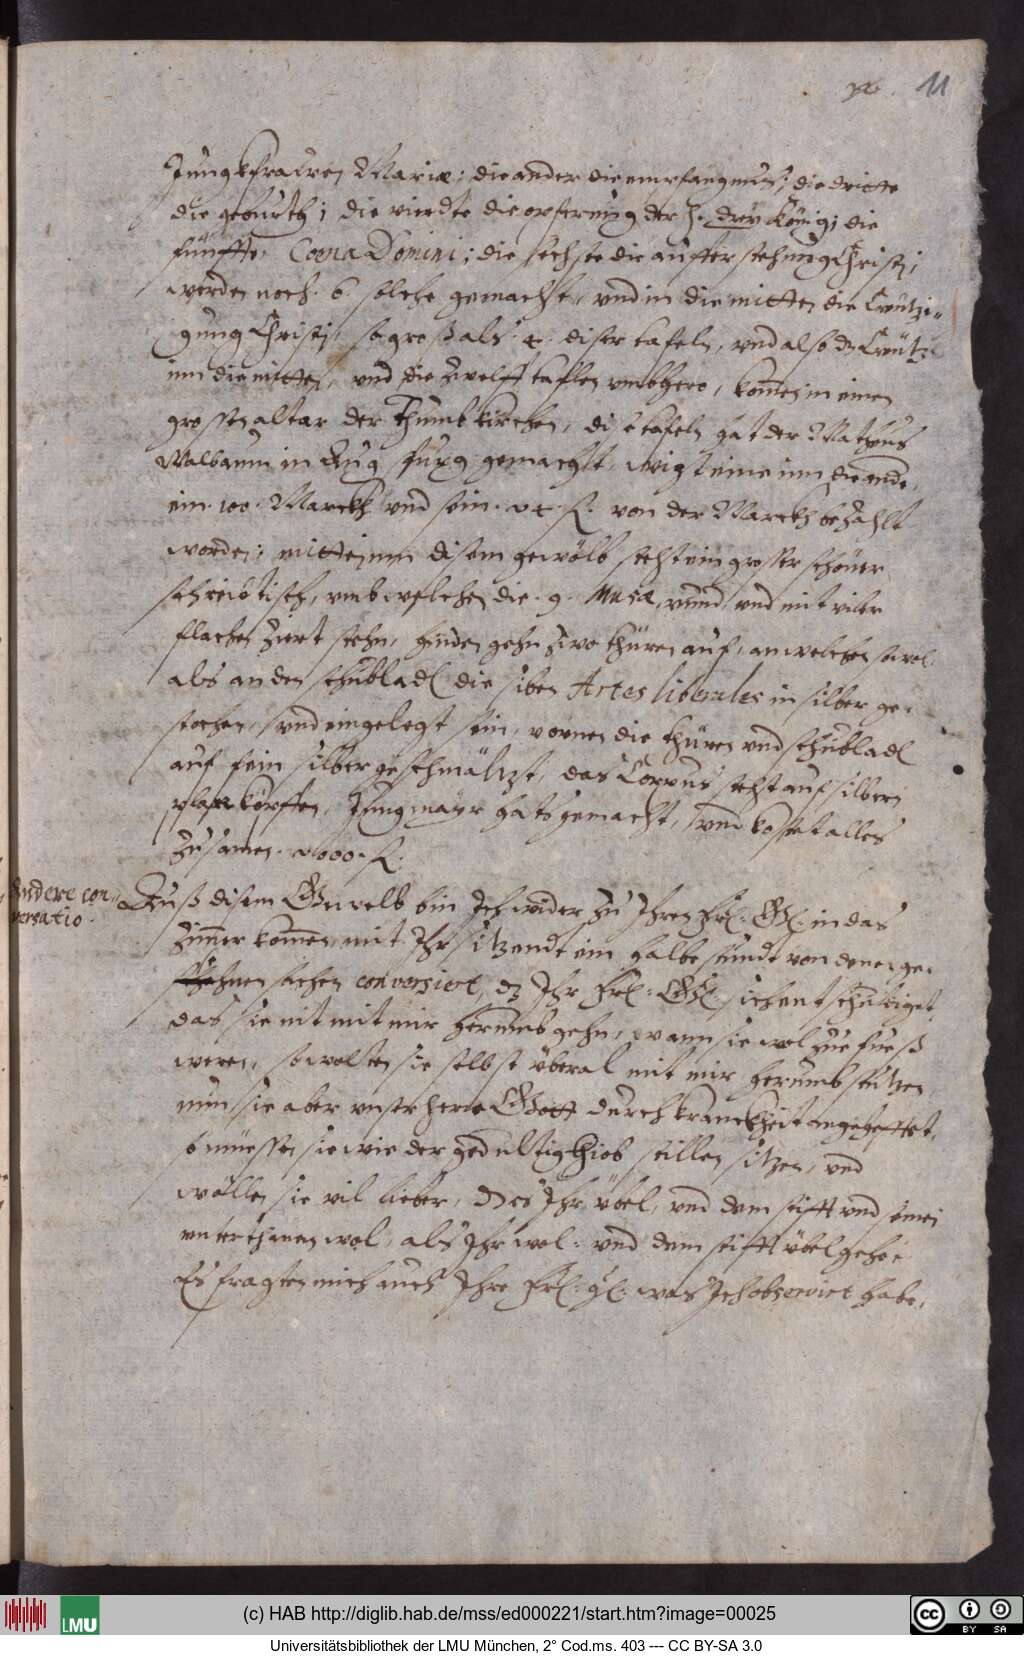 11
Jungkfrawen Mariæ; die ander die empfangnus; die dritte
die geburth; die vierdte die opferung der H. drey König; die
fünffte, Coena Domini; die sechste die aufferstehung Christi;
werden noch 6. solche gemacht, vnd in die mitten die Creützi-
gung Christi, so gross als 4. diser tafeln, vnd also dz Creütz
inn die mitten, vnd die zwelff taflen vmbhero, komen in einen
grossen altar der Thumbkirchen, dise tafeln hat der Matheus
Walbaum in Aug spurg gemacht, wigt eine inn die ander
ein 100. Marckh vnd sein 24. f. von der Marckh bezahlt
worden; mitten inn disem gewölb steht ein grosser schöner
schreibtisch, vmb welchen die 9. Musæ, rund, vnd mit vilen
flachen ziert stehn, hinden gehn zwo thüren auf, an welchen sowol
als an den schubladl die siben Artes liberales in silber ge-
stochen, vnd eingelegt sein, vornen die thüren vnd schubladl
auf fein silber geschmältzt, das Corpus steht auf silberi
köpffen, Jungmayr hats gemacht, vnd kostet alles
zusamen 2000. f.
Andere con-
versatio.
Auss disem Gewelb bin Ich wider zu Ihren Frl: Gl: in das
zimmer komen, mit Ihr sitzendt ein halbe stundt von denen ge-
sehnen sachen conversiert, dz Ihr Frl: Gl: sich entschuldiget
das sie nit mit mir herumb gehn, wann sie wol zue fuess
weren, so wolten sie selbst überal mit mir herumb stützen
nun sie aber vnser herr Gott durch kranckheit angehefftet,
so müessen sie wie der gedultig Hiob stillen sitzen, vnd
wöllen sie vil lieber, dz es Ihr übel, vnd dem stifft vnd seinen
vnterthanen wol, als Ihr wol: vnd dem stifft übel gehe
Es fragten mich auch Ihre Frl: gl: was Ich observirt habe,
(c) HAB http://diglib.hab.de/mss/ed000221/start.htm?image=00025
LMU
cc BY SA
Universitätsbibliothek der LMU München, 2° Cod.ms. 403 --- CC BY-SA 3.0